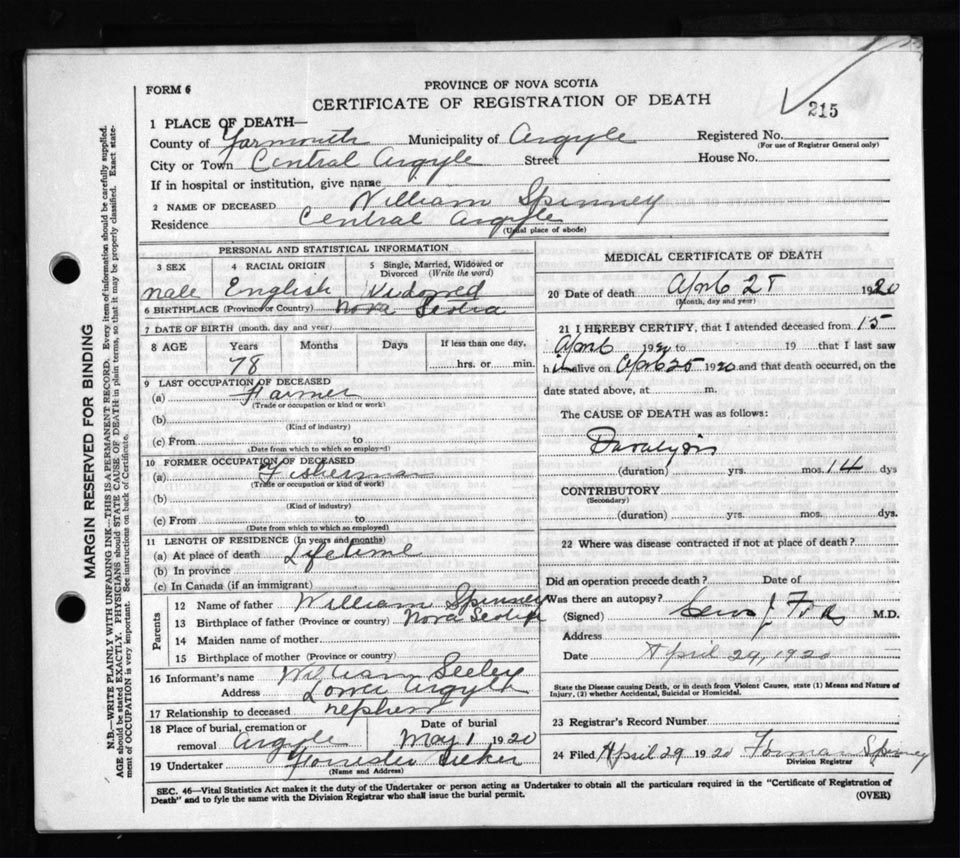 FORM 6
PROVINCE OF NOVA SCOTIA
CERTIFICATE OF REGISTRATION OF DEATH
215
1 PLACE OF DEATH—
County of Yarmouth Municipality of Argyle Registered No.
(For use of Registrar General only)
City or Town Central Argyle Street House No.
If in hospital or institution, give name
2 NAME OF DECEASED William Spinney
Residence Central Argyle
(Usual place of abode)
PERSONAL AND STATISTICAL INFORMATION
3 SEX 4 RACIAL ORIGIN 5 Single, Married, Widowed or Divorced (Write the word)
Male English Widowed
6 BIRTHPLACE (Province or Country) Nova Scotia
7 DATE OF BIRTH (month, day and year)
8 AGE Years Months Days If less than one day,
78 hrs. or min.
9 LAST OCCUPATION OF DECEASED
(a) Farmer
(Trade or occupation or kind or work)
(b)
(Kind of industry)
(c) From to
(Date from which to which so employed)
10 FORMER OCCUPATION OF DECEASED
(a) Fisherman
(Trade or occupation or kind or work)
(b)
(Kind of industry)
(c) From to
(Date from which to which so employed)
11 LENGTH OF RESIDENCE (In years and months)
(a) At place of death Lifetime
(b) In province
(c) In Canada (if an immigrant)
Parents
12 Name of father William Spinney
13 Birthplace of father (Province or country) Nova Scotia
14 Maiden name of mother
15 Birthplace of mother (Province or country)
16 Informant's name William Seeley
Address Lower Argyle
17 Relationship to deceased nephew
18 Place of burial, cremation or removal Argyle Date of burial May 1 1920
19 Undertaker Forrester
(Name and Address)
MEDICAL CERTIFICATE OF DEATH
20 Date of death 1920
(Month, day and year)
21 I HEREBY CERTIFY, that I attended deceased from 15
April 1920 to 19 that I last saw
h alive on April 25 1920 and that death occurred, on the
date stated above, at m.
The CAUSE OF DEATH was as follows:
Paralysis
(duration) yrs. mos. 14 dys
CONTRIBUTORY
(Secondary)
(duration) yrs. mos. dys.
22 Where was disease contracted if not at place of death?
Did an operation precede death? Date of
Was there an autopsy?
(Signed) M.D.
Address
Date April 29, 1920
State the Disease causing Death, or in death from Violent Causes, state (1) Means and Nature of
Injury, (2) whether Accidental, Suicidal or Homicidal.
23 Registrar's Record Number
24 Filed April 29 1920 Forman Spinney
Division Registrar
SEC. 46—Vital Statistics Act makes it the duty of the Undertaker or person acting as Undertaker to obtain all the particulars required in the "Certificate of Registration of
Death" and to fyle the same with the Division Registrar who shall issue the burial permit.
(OVER)
MARGIN RESERVED FOR BINDING
N.B.—WRITE PLAINLY WITH UNFADING INK—THIS IS A PERMANENT RECORD. Every item of information should be carefully supplied.
AGE should be stated EXACTLY. PHYSICIANS should STATE CAUSE OF DEATH in plain terms, so that it may be properly classified. Exact state-
ment of OCCUPATION is very important. See instructions on back of Certificate.